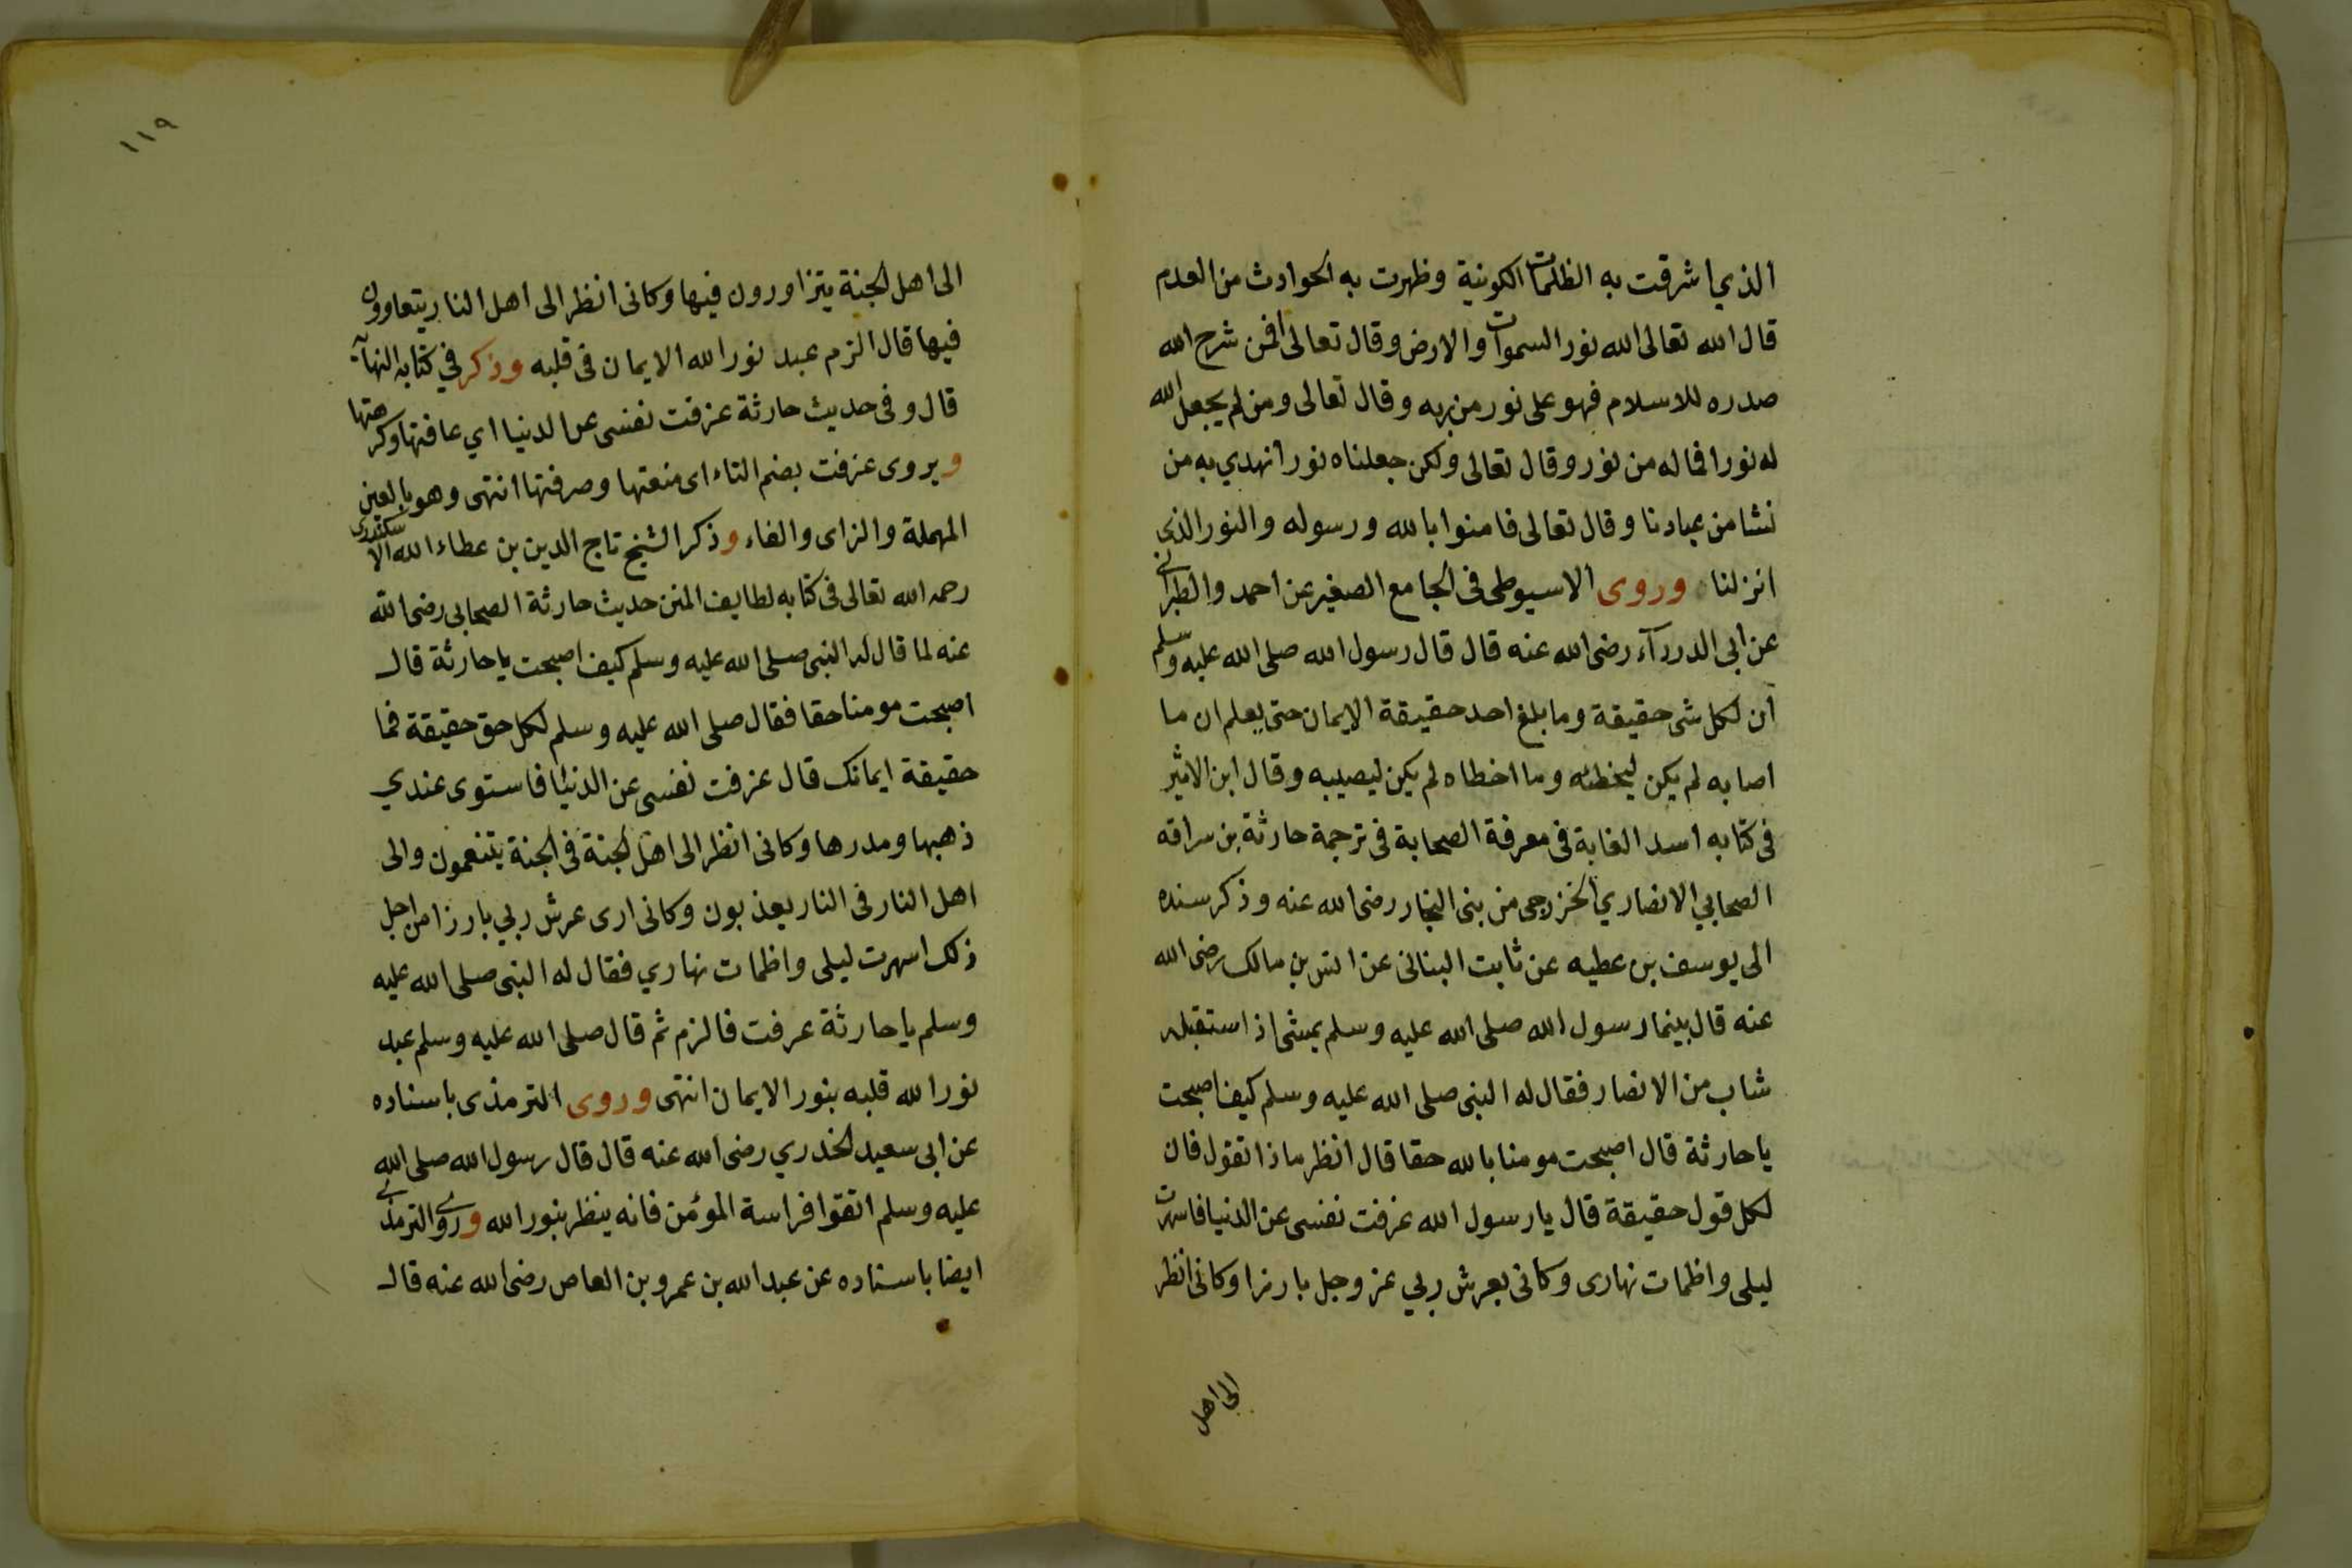 الذي اشرقت به الظلمات الكونية وظهرت به الحوادث من العدم
قال الله تعالى الله نور السموات والارض وقال تعالى افمن شرح الله
صدره للاسلام فهو على نور من ربه وقال تعالى ومن لم يجعل الله
له نورا فما له من نور وقال تعالى ولكن جعلناه نورا نهدي به من
نشا من عبادنا وقال تعالى فامنوا بالله ورسوله والنور الذي
انزلنا وروى الاسيوطى فى الجامع الصغير عن احمد والطبرانى
عن ابى الدردآء رضى الله عنه قال قال رسول الله صلى الله عليه وسلم
ان لكل شى حقيقة وما بلغ احد حقيقة الايمان حتى يعلم ان ما
اصابه لم يكن ليخطئه وما اخطاه لم يكن ليصيبه وقال ابن الاثير
فى كتابه اسد الغابة فى معرفة الصحابة فى ترجمة حارثة بن سراقه
الصحابي الانصاري الخزرجى من بنى النجار رضى الله عنه وذكر سنده
الى يوسف بن عطيه عن ثابت البنانى عن انس بن مالك رضى الله
عنه قال بينما رسول الله صلى الله عليه وسلم يمشى اذ استقبله
شاب من الانصار فقال له النبى صلى الله عليه وسلم كيف اصبحت
يا حارثة قال اصبحت مومنا بالله حقا قال انظر ماذا تقول فان
لكل قول حقيقة قال يا رسول الله عزفت نفسى عن الدنيا فاسهرت
ليلى واظمات نهارى وكانى بعرش ربي عز وجل بارزا وكانى انظر
الى اهل
١١٩
الى اهل الجنة يتزاورون فيها وكانى انظر الى اهل النار يتعاوون
فيها قال الزم عبد نور الله الايمان فى قلبه وذكر في كتابه النهآية
قال وفى حديث حارثة عزفت نفسى عن الدنيا اي عافتها وكرهتها
ويروى عزفت بضم التاء اى منعتها وصرفتها انتهى وهو بالعين
المهملة والزاى والفاء وذكر الشيخ تاج الدين بن عطاء الله الاسكندرى
رحمه الله تعالى فى كتابه لطايف المنن حديث حارثة الصحابي رضى الله
عنه لما قال له النبى صلى الله عليه وسلم كيف اصبحت يا حارثة قال
اصبحت مومنا حقا فقال صلى الله عليه وسلم لكل حق حقيقة فما
حقيقة ايمانك قال عزفت نفسى عن الدنيا فاستوى عندي
ذهبها ومدرها وكانى انظر الى اهل الجنة فى الجنة يتنعمون والى
اهل النار فى النار يعذبون وكانى ارى عرش ربي بارزا من اجل
ذلك اسهرت ليلى واظمات نهاري فقال له النبى صلى الله عليه
وسلم يا حارثة عرفت فالزم ثم قال صلى الله عليه وسلم عبد
نور الله قلبه بنور الايمان انتهى وروى الترمذى باسناده
عن ابى سعيد الخدري رضى الله عنه قال قال رسول الله صلى الله
عليه وسلم اتقوا فراسة المؤمن فانه ينظر بنور الله وروى الترمذى
ايضا باسناده عن عبد الله بن عمرو بن العاص رضى الله عنه قال